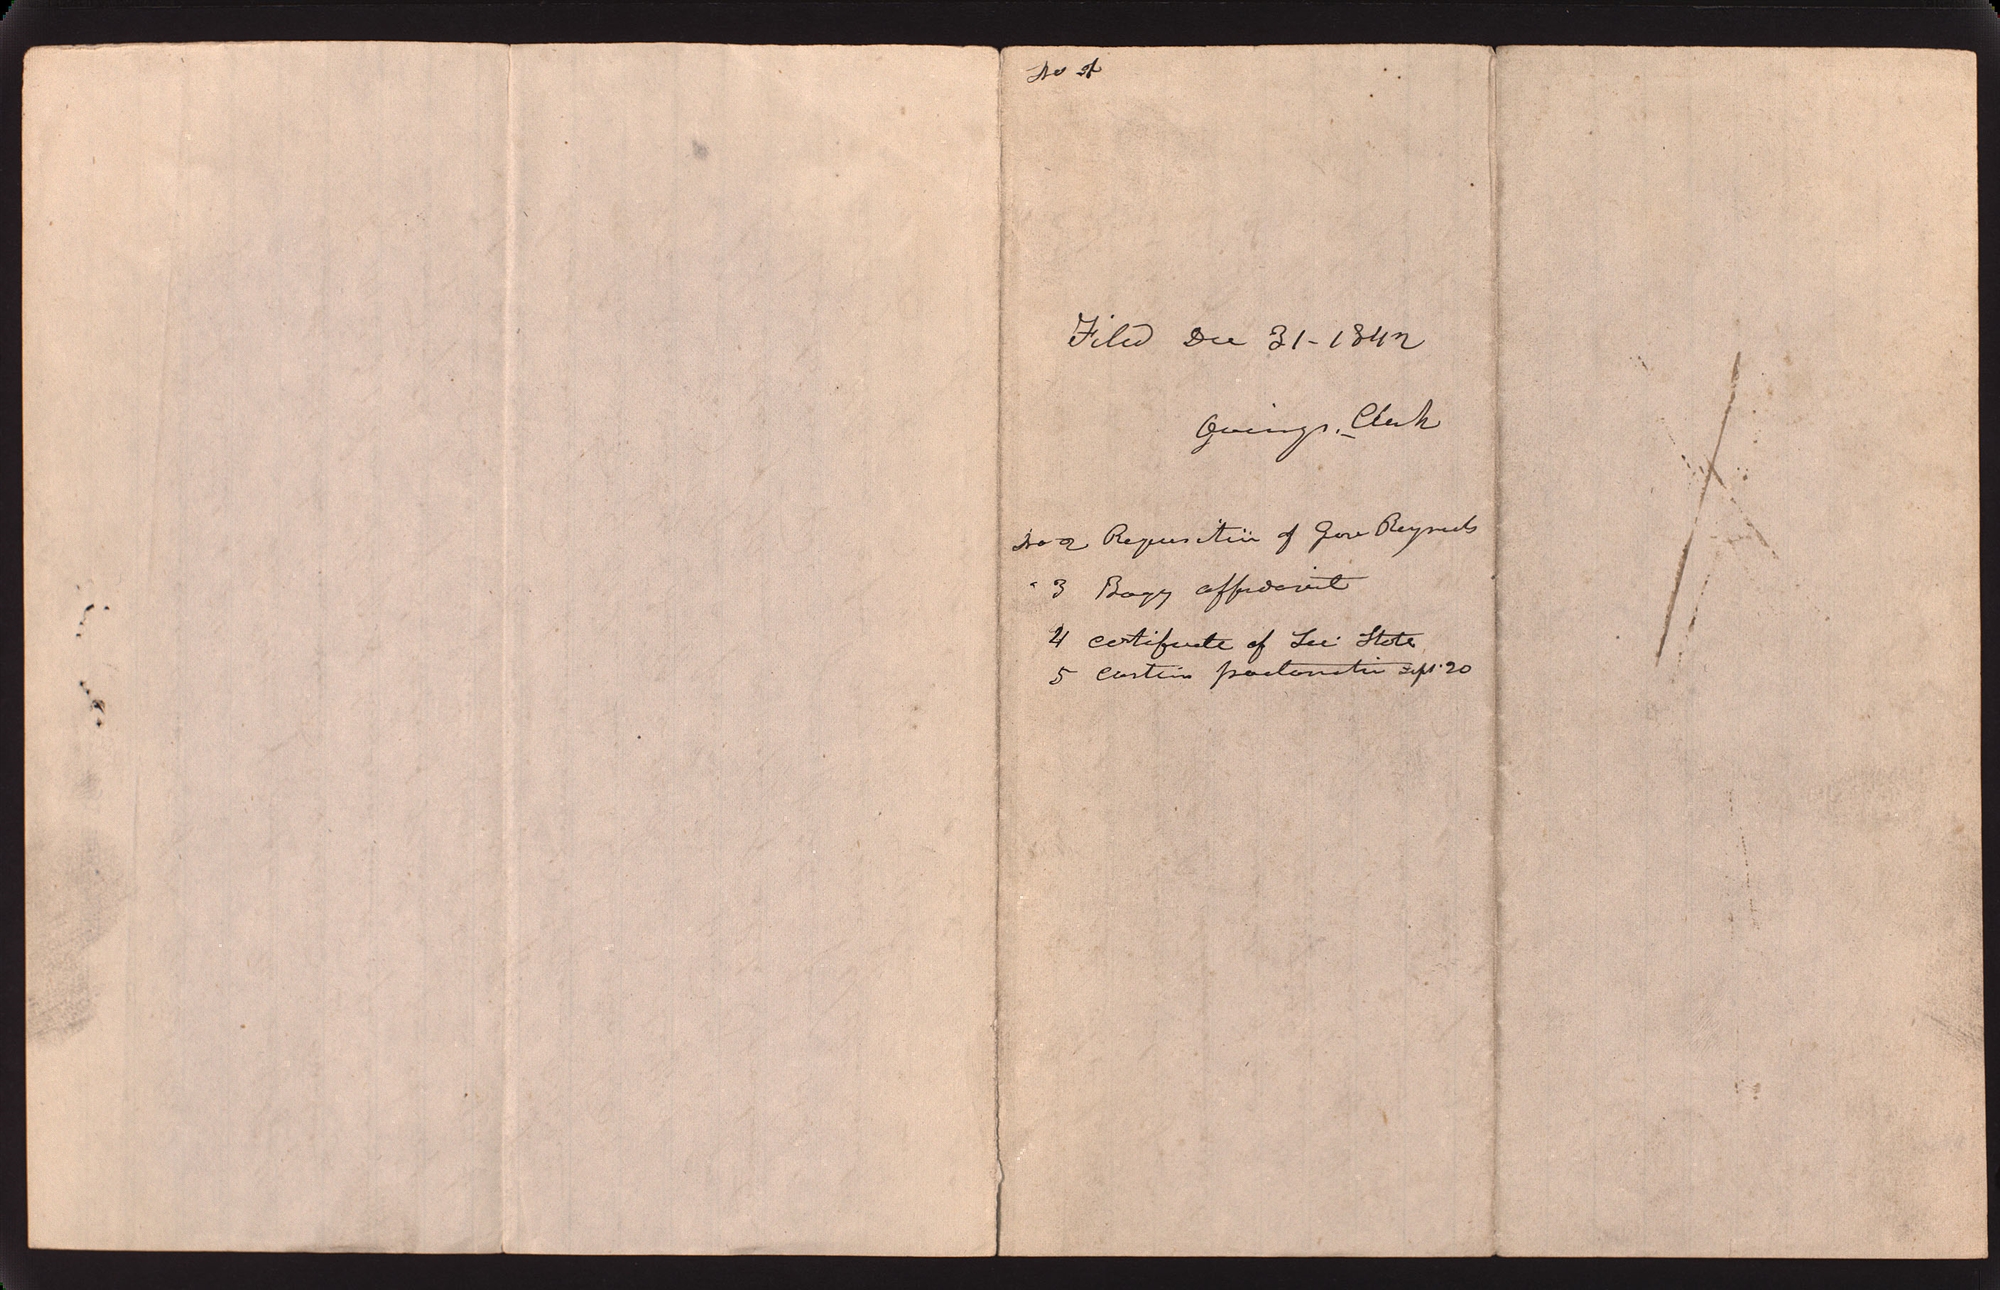 No 1
Filed Dec 31-1842
Owings, Clerk
No 2 Requisition of Gov Reynolds
" 3 Bogg affidavit
4 certificate of Sec State
5 Carlin proclamation Sept 20